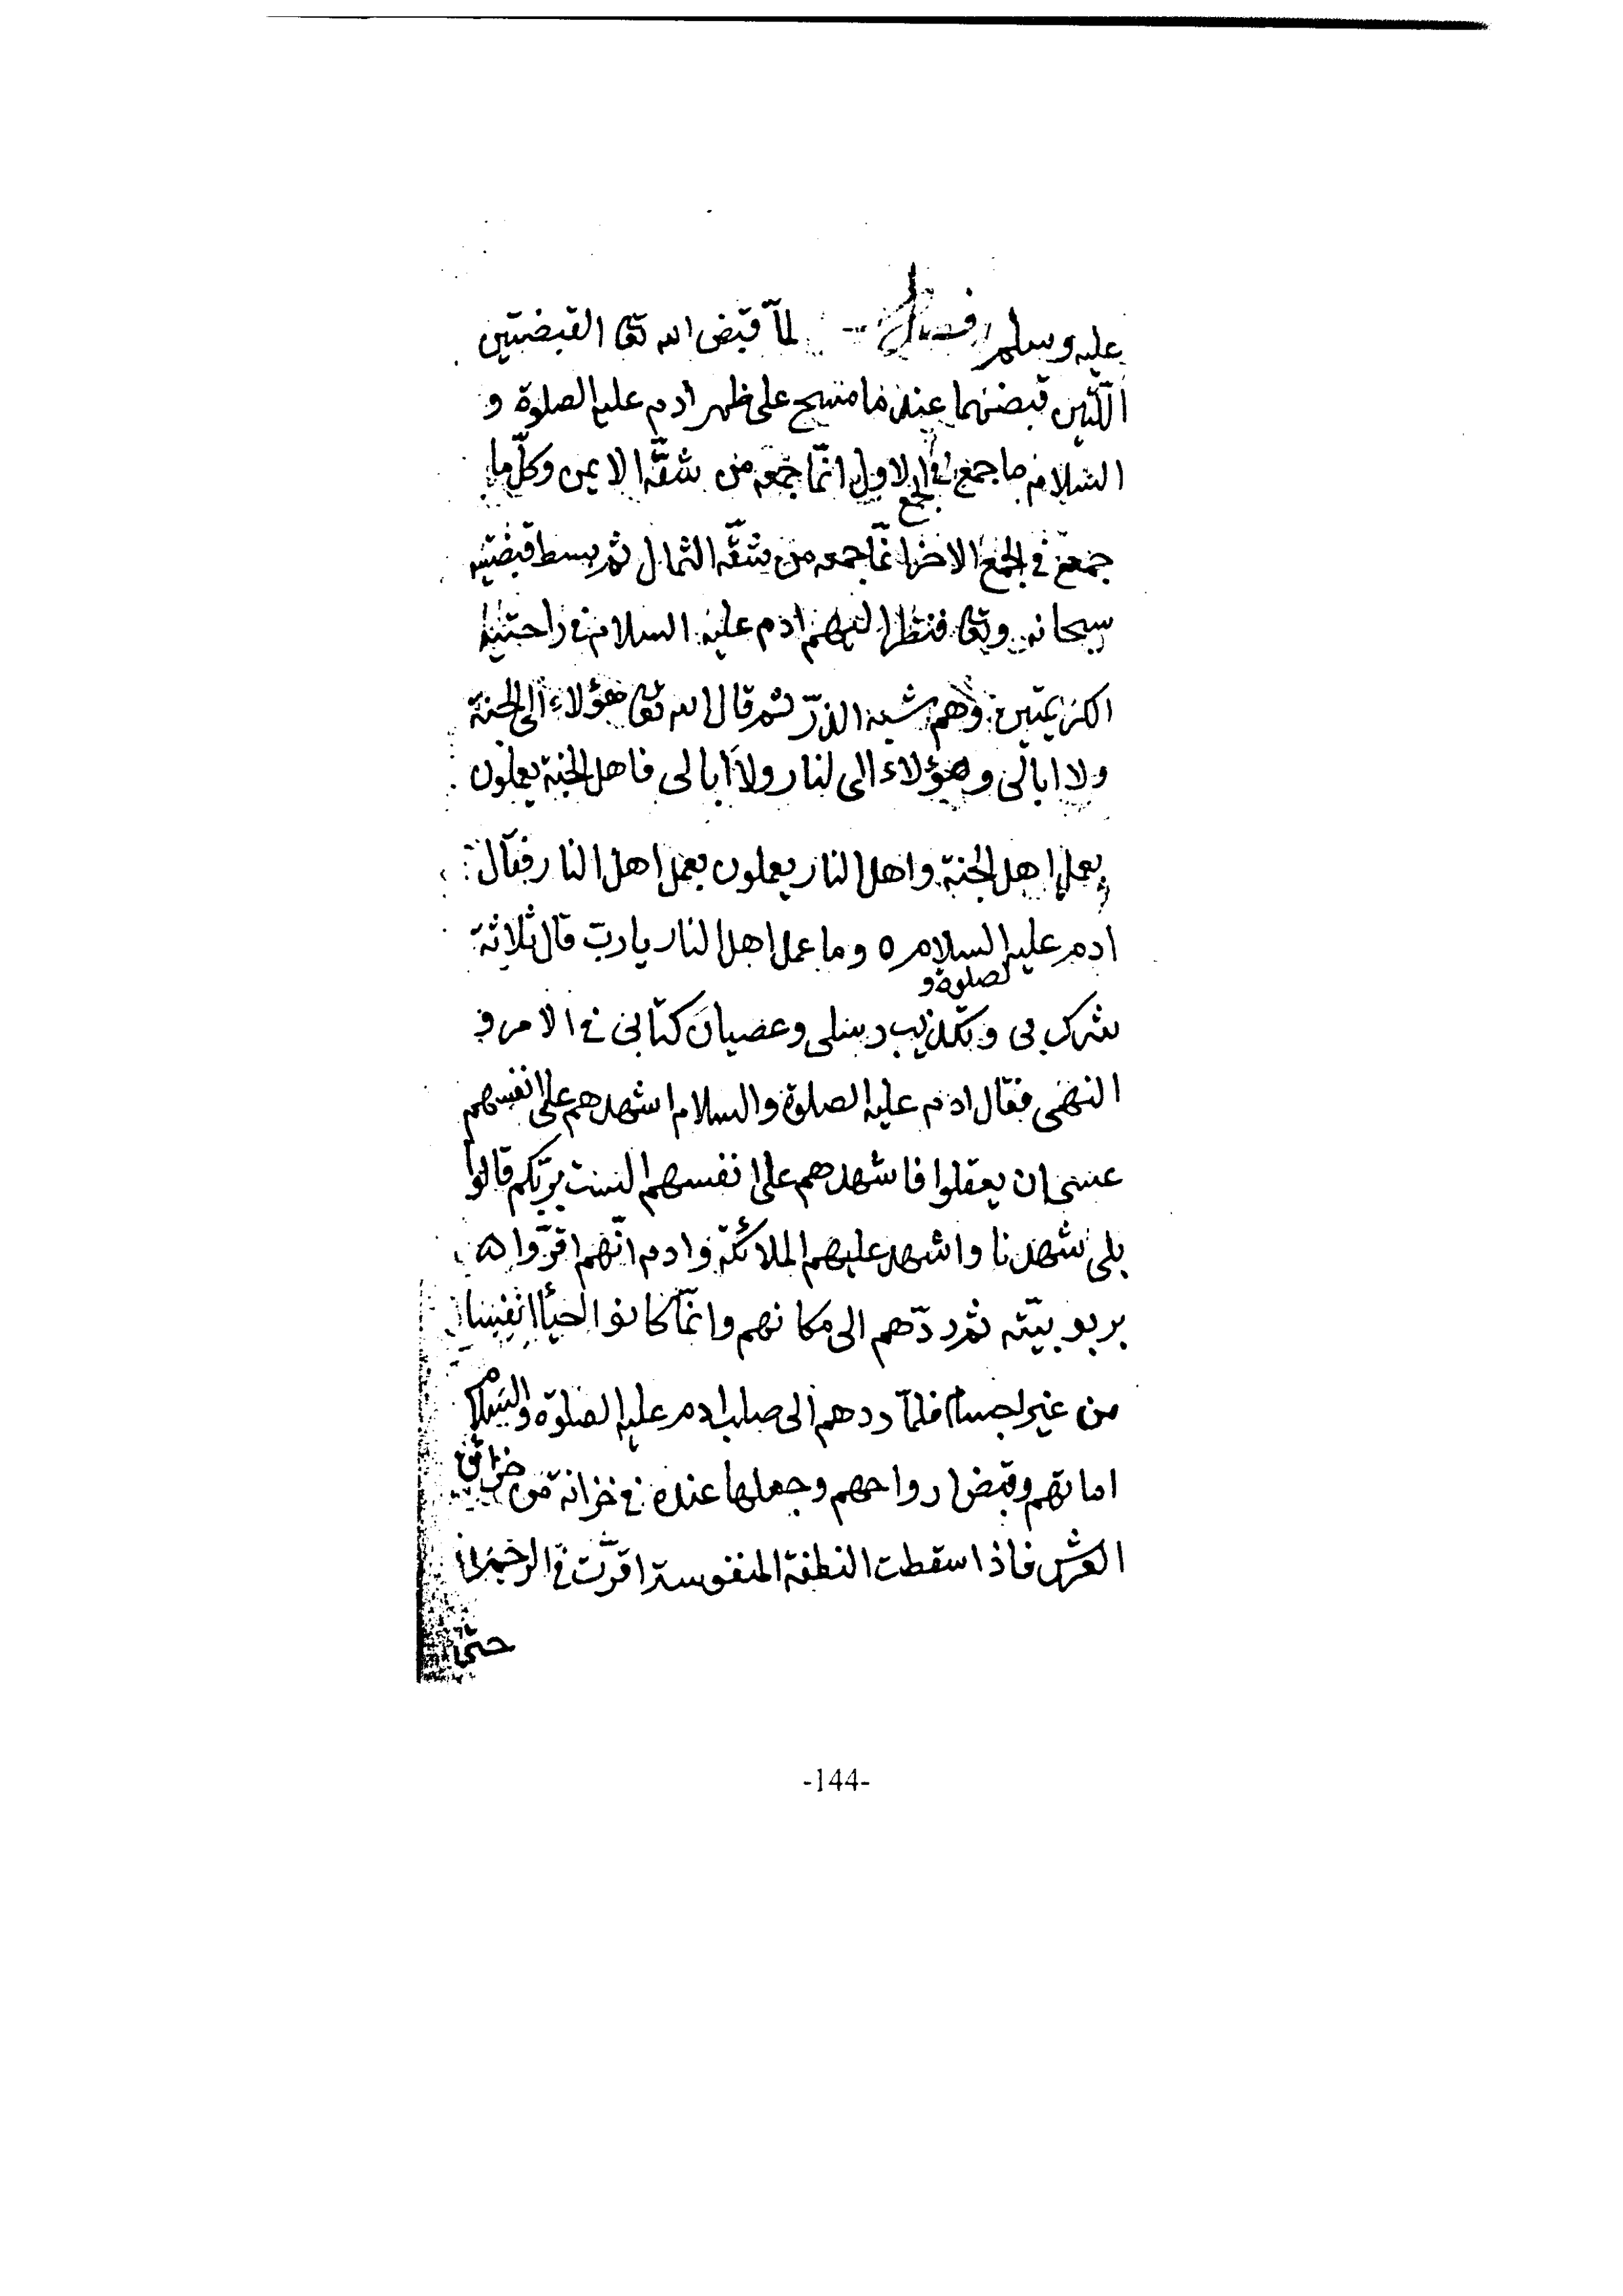 عليه وسلم فصل لمّا قبض الله تعا القبضتين
اللتين قبضهما عند ما مسح على ظهر ادم عليه الصلوة و
السلام ما جمع في الجمع الاول انّما جمعه من شقّه الايمن وكلّ ما
جمعه في الجمع الاخر انّما جمعه من شقّه الشمال ثم بسط قبضتيه
سبحانه وتعا فنظر اليهم ادم عليه السلام في راحتيه
الكريمتين وهم شبه الذرّ ثم قال الله تعا هؤلاء الى الجنة
ولا ابالى وهؤلاء الى النار ولا ابالى فاهل الجنة يعملون
بعمل اهل الجنة واهل النار يعملون بعمل اهل النار فقال
ادم عليه الصلوة و السلام ه وما عمل اهل النار يا ربّ قال ثلاثة
شرك بى وتكذيب رسلى وعصيان كتابى في الامر و
النهى فقال ادم عليه الصلوة والسلام اشهدهم على انفسهم
عسى ان يعقلوا فاشهدهم على انفسهم الست بربّكم قالوا
بلى شهدنا واشهد عليهم الملائكة وادم انّهم اقرّوا ه
بربوبيّته ثم ردّهم الى مكانهم وانّما كانوا احيأ انفسا
من غير اجسام فلمّا ردهم الى صلب ادم عليه الصلوة والسلام
اماتهم وقبض ارواحهم وجعلها عنده في خزانة من خزائن
العرش فاذا سقطت النطفة المنفوسة اقرّت في الرحم
حتى
-144-